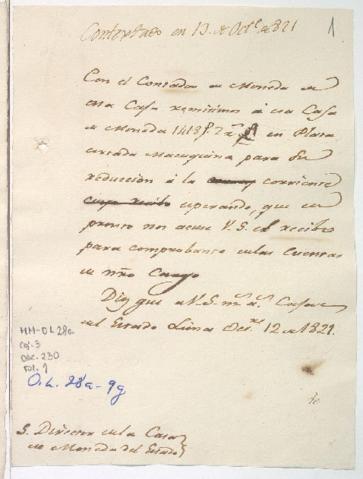 Contextado en 13. de Oct.e de 821
1
Con el Contador de Moneda de
esa Casa remitimos á esa Casa
de Moneda 1418 p.s 2 r.s en Plata
cortada Macuquina para su
reducción á la corriente
esperando, que de
pronto nos acuse V.S. el recibo
para comprobante de las Cuentas
de nño Cargo
Dios gue a V.S. m.s a.s Casa
del Estado Lima Oct.re 12 de 1821.
MM-OL 28a
Caj. 3
Doc. 230
fol. 1
O.L. 28a-9g
S. Director de la Casa
de Moneda del Estado